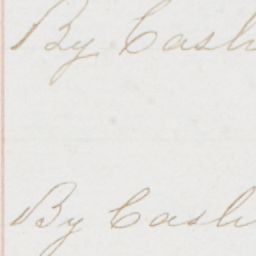 By Cash
By Cash